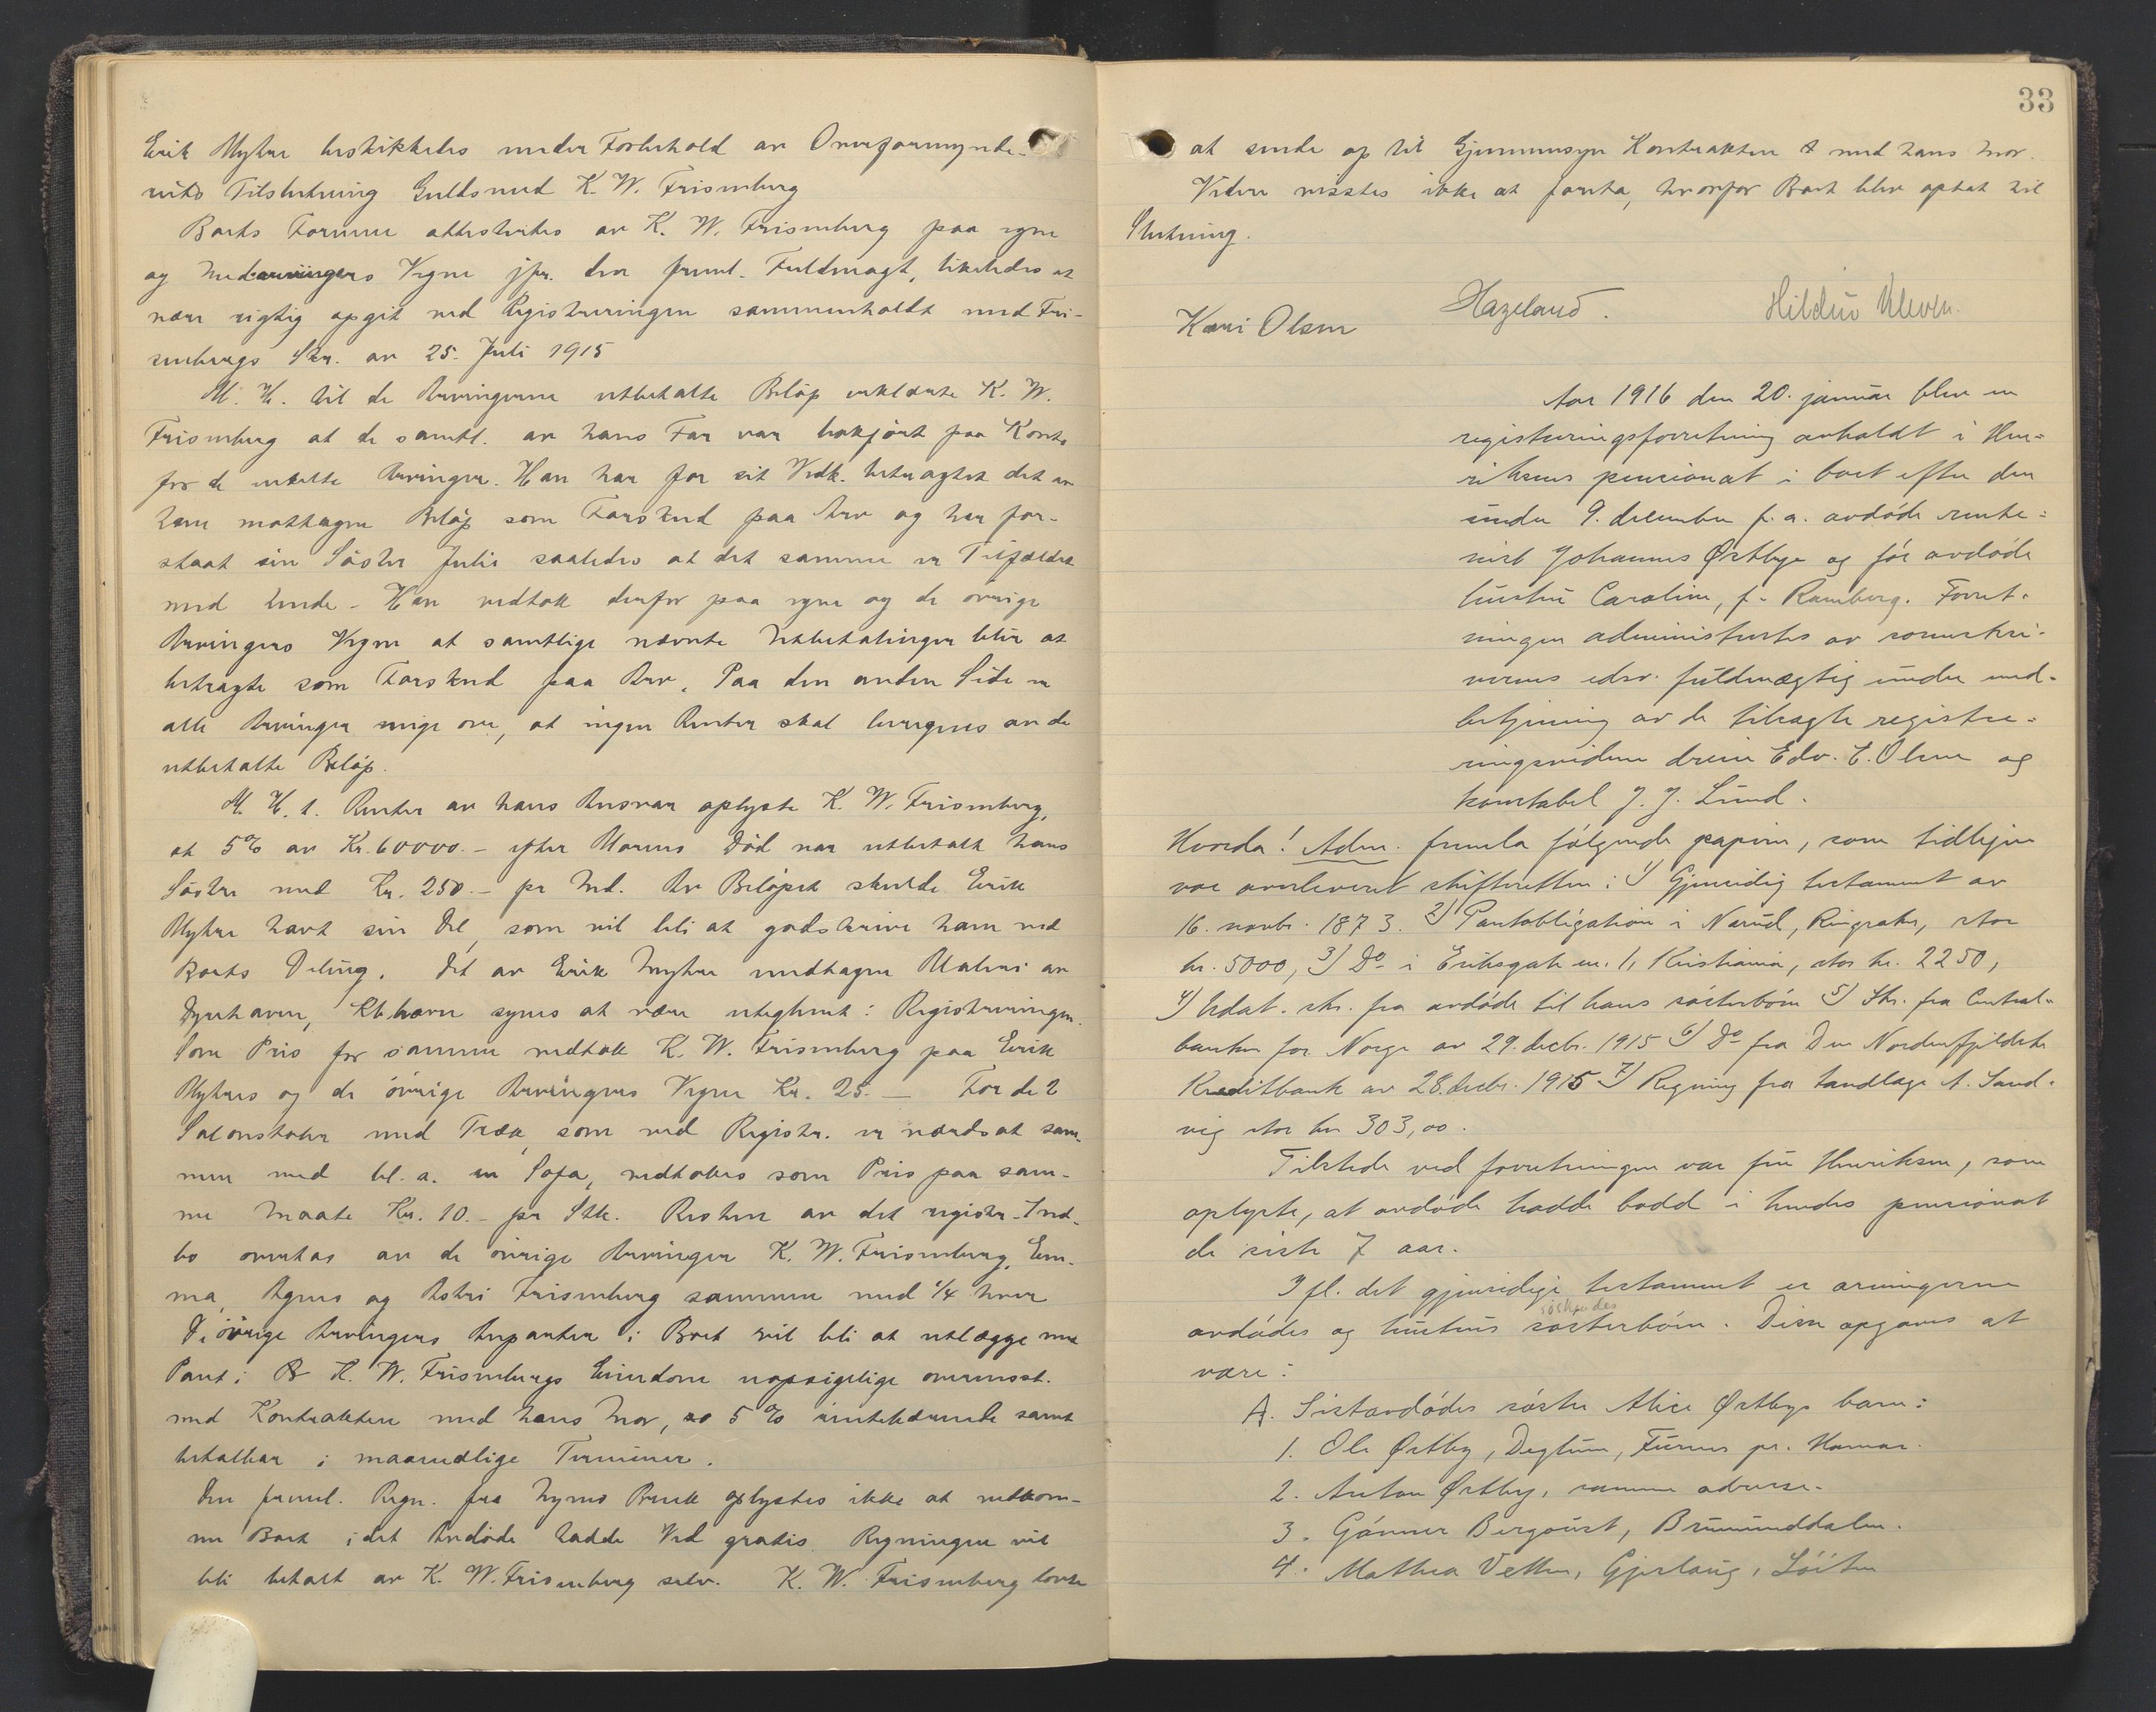 Erik Myhre beskikkedes under Forbehold av Overformynde-
riets Tilslutning Guldsmed K. W. Frisenberg
Boets Formue attesteredes av K. W. Frisenberg paa egne
og Medarvingers Vegne jfr. den freml. Fuldmagt, likeledes at
være rigtig opgit ved Registreringen sammenholdt med Fri-
senbergs Skr. av 25. Juli 1915
M. H. til de Arvingerne utbetalte Beløp erklærte K. W.
Frisenberg at de samtl. av hans Far var bokført paa Konto
for de enkelte Arvinger. Han har for sit Vedk. betragtet det av
ham mottagne Beløp som Forskud paa Arv og har for-
staat sin Søster Julie saaledes at det samme er Tilfældet
med hende. - Han vedtok derfor paa egne og de øvrige
Arvingers Vegne at samtlige nævnte Utbetalinger blir at
betragte som Forskud paa Arv. Paa den anden Side er
alle Arvinger enige om, at ingen Renter skal beregnes av de
utbetalte Beløp.
M. H. t. Renter av hans Ansvar oplyste K. W. Frisenberg,
at 5% av Kr. 60000.- efter Morens Død var utbetalt hans
Søstre med Kr. 250.- pr Md. Av Beløpet skulde Erik
Myhre havt sin Del, som vil bli at godskrive ham ved
Boets Deling. Det av Erik Myhre medtagne Maleri av
Dyrehaven, Kbhavn synes at være uteglemt i Registreringen.
Som Pris for samme vedtok K. W. Frisenberg paa Erik
Myhres og de øvrige Arvingers Vegne Kr. 25.- For de 2
Salonstoler med Træk, som ved Registr. er værdsat sam-
men med bl. a. en Sofa, vedtokes som Pris paa sam-
me Maate Kr. 10.- pr Stk. Resten av det registr. Ind-
bo overtas av de øvrige Arvinger K. W. Frisenberg, Em-
ma, Agnes og Astri Frisenberg sammen med 1/4 hver
De øvrige Arvingers Arveparter i Boet vil bli at utlægge mot
Pant i K. W. Frisenbergs Eiendom uopsigelige overensst.
med Kontrakten med hans Mor, 5% rentebærende samt
betalbar i maanedlige Terminer.
Den freml. Regn. fra Bruk oplystes ikke at vedkom-
me Boet idet Avdøde hadde Ved gratis. Regningen vil
bli betalt av K. W. Frisenberg selv. K. W. Frisenberg lovte
33
at sende op til Gjennemsyn Kontrakten med hans Mor.
Videre visstes ikke at foreta, hvorfor Boet blev optat til
Slutning.
Kari Olsen Hazeland. Hildur Kleven.
Aar 1916 den 20. januar blev en
registreringsforretning avholdt i Hen-
riksens pensionat i boet efter den
under 9. december f. a. avdøde rente-
nist Johannes Østbye og før avdøde
hustru Caroline, f. Ramberg. Forret-
ningen administrertes av sorenskri-
verens edsv. fuldmægtig under med-
betjening av de tilsagte registre-
ringsvidner dreier Edv. E. Olsen og
konstabel J. J. Lund.
Hvorda! Adm. fremla følgende papirer, som tidligere
var avleveret skifteretten: 1) Gjensidig testament av
16. novbr. 1873. 2) Pantobligation i Narud, Ringsaker, stor
kr. 5000, 3) Do i Eriksgate nr. 1, Kristiania, stor kr. 2250,
4) Udat. skr. fra avdøde til hans søsterbørn 5) Skr. fra Central-
banken for Norge av 29. decbr. 1915 6) Do fra Den Nordenfjeldske
Kreditbank av 28. decbr. 1915 7) Regning fra tandlæge A. Sand-
vig stor kr 303,00.
Tilstede ved forretningen var fru Henriksen, som
oplyste, at avdøde hadde bodd i hendes pensionat
de siste 7 aar.
Ifl. det gjensidige testament er arvingerne
søskendes
avdødes og hustrus søsterbørn. Disse opgaves at
være:
A. Sistavdødes søster Alice Østbys barn:
1. Ole Østby, Deglum, Furnes pr. Hamar.
2. Anton Østby, samme adresse.
3. Gunner Bergqvist, Brumunddalen.
4. Mathea Vetten, Gjerlaug, Løiten